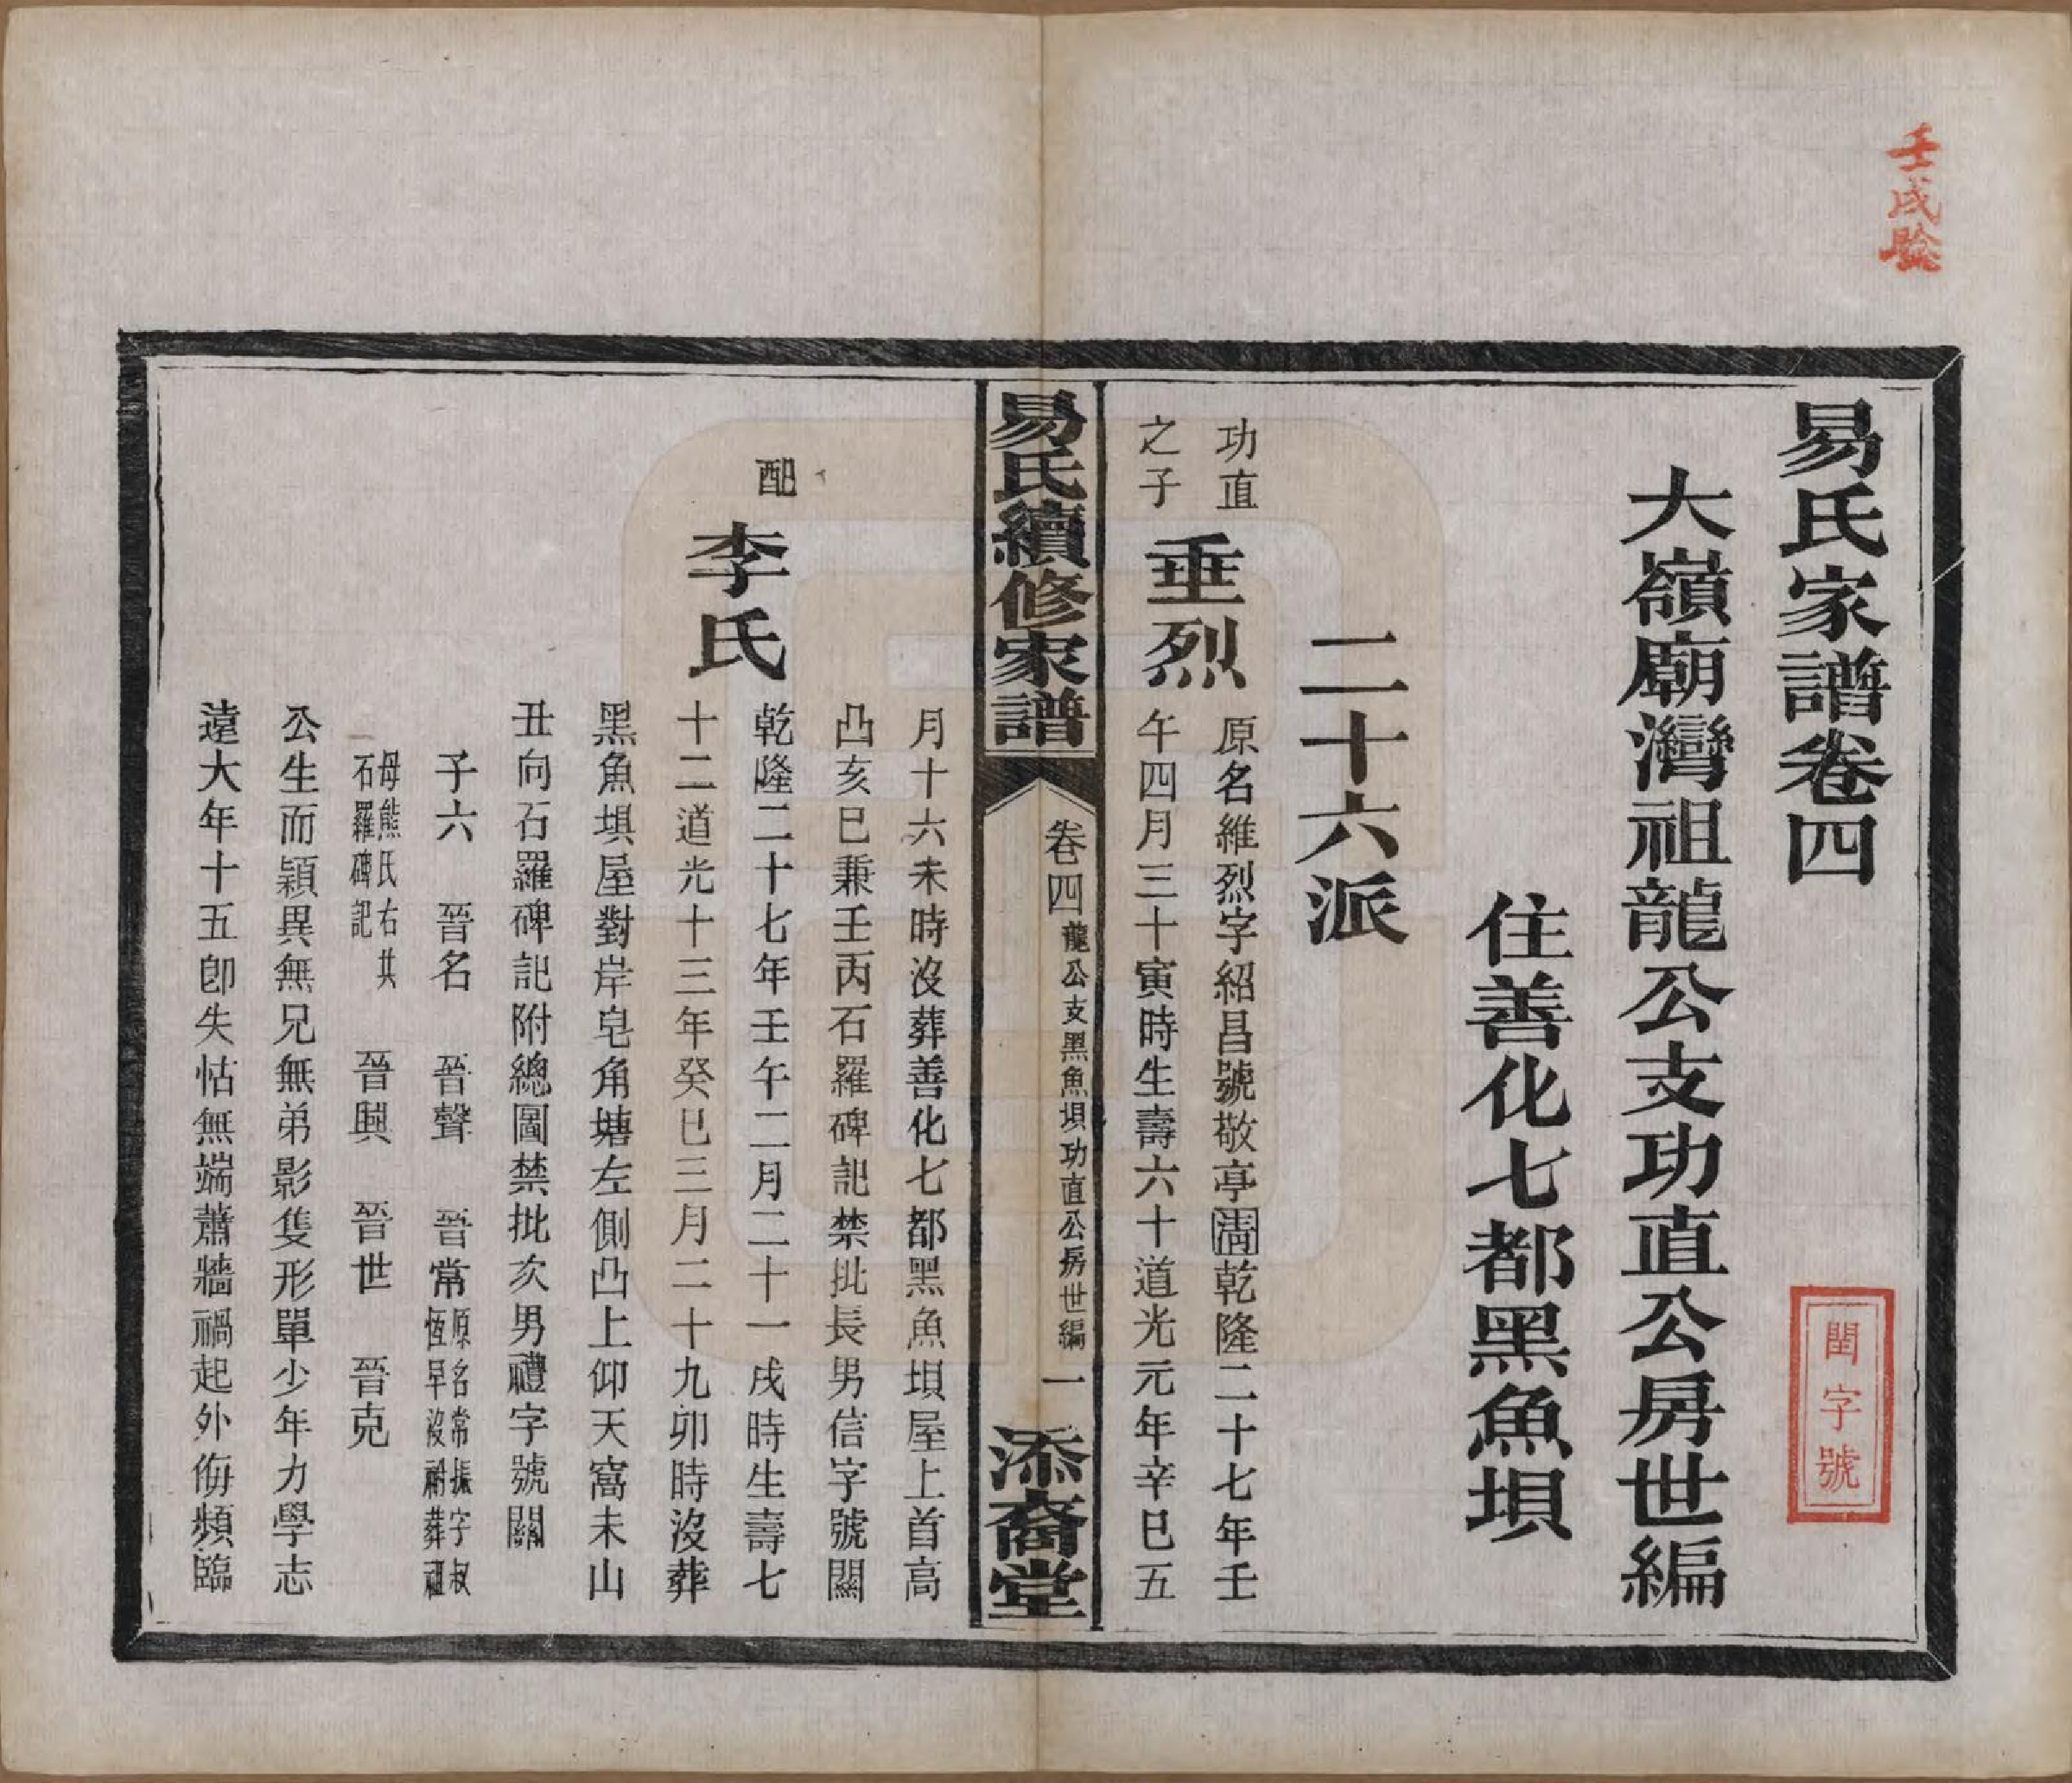 壬戌
易氏家譜卷四
閏字號
大嶺廟灣祖龍公支功直公房世編
住善化七都黑魚埧
二十六派
功直
之子
垂烈
原名維烈字紹昌號敬亭清乾隆二十七年壬
午四月三十寅時生壽六十道光元年辛巳五
易氏續修家譜
卷四
龍公支黑魚埧功直公房世編
一
添裔堂
月十六未時沒葬善化七都黑魚埧屋上首高
凸亥巳兼壬丙石羅碑記禁批長男信字號關
配
李氏
乾隆二十七年壬午二月二十一戌時生壽七
十二道光十三年癸巳三月二十九卯時沒葬
黑魚埧屋對岸皂角塘左側凸上仰天窩未山
丑向石羅碑記附總圖禁批次男禮字號關
子六 晉名 晉聲 晉常
原名常振字叔
恆早沒祔葬祖
母熊氏右其
石羅碑記
晉興 晉世 晉克
公生而穎異無兄無弟影隻形單少年力學志
遠大年十五卽失怙無端蕭牆禍起外侮頻臨